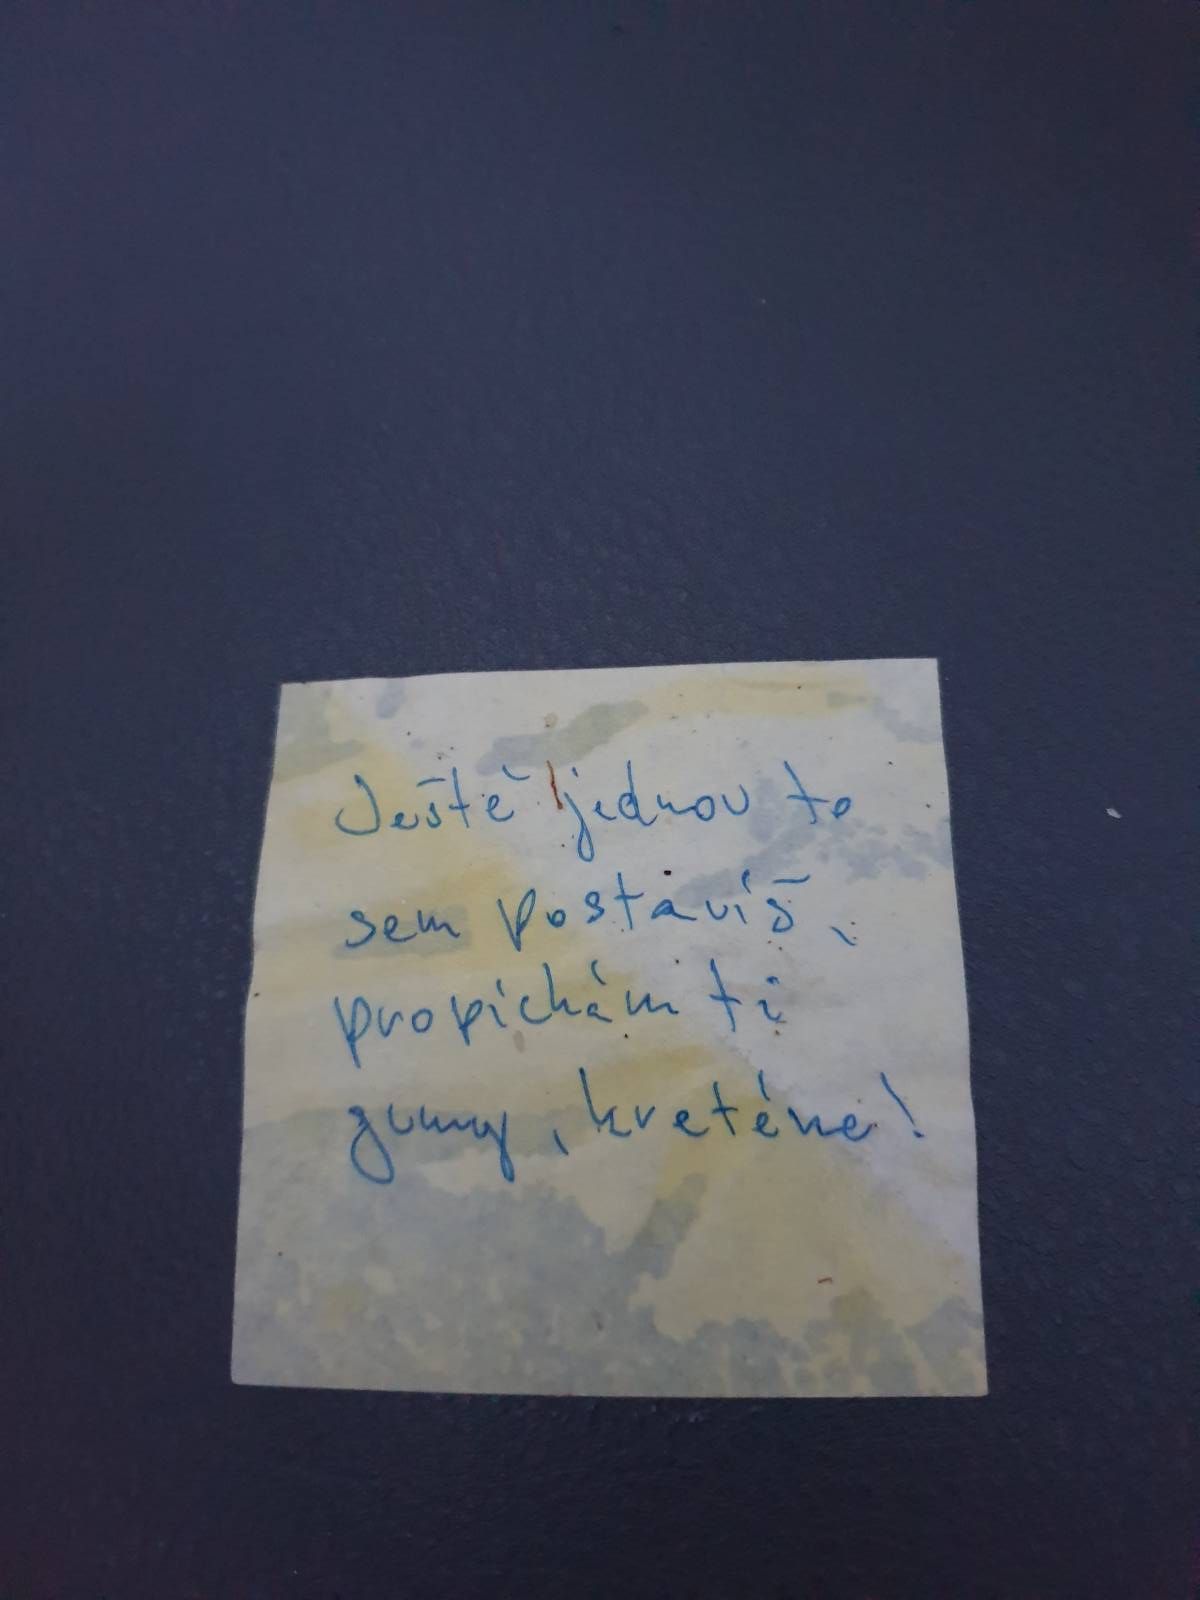 Ještě jednou to
sem postavíš,
propíchám ti
gumy, kreténe!